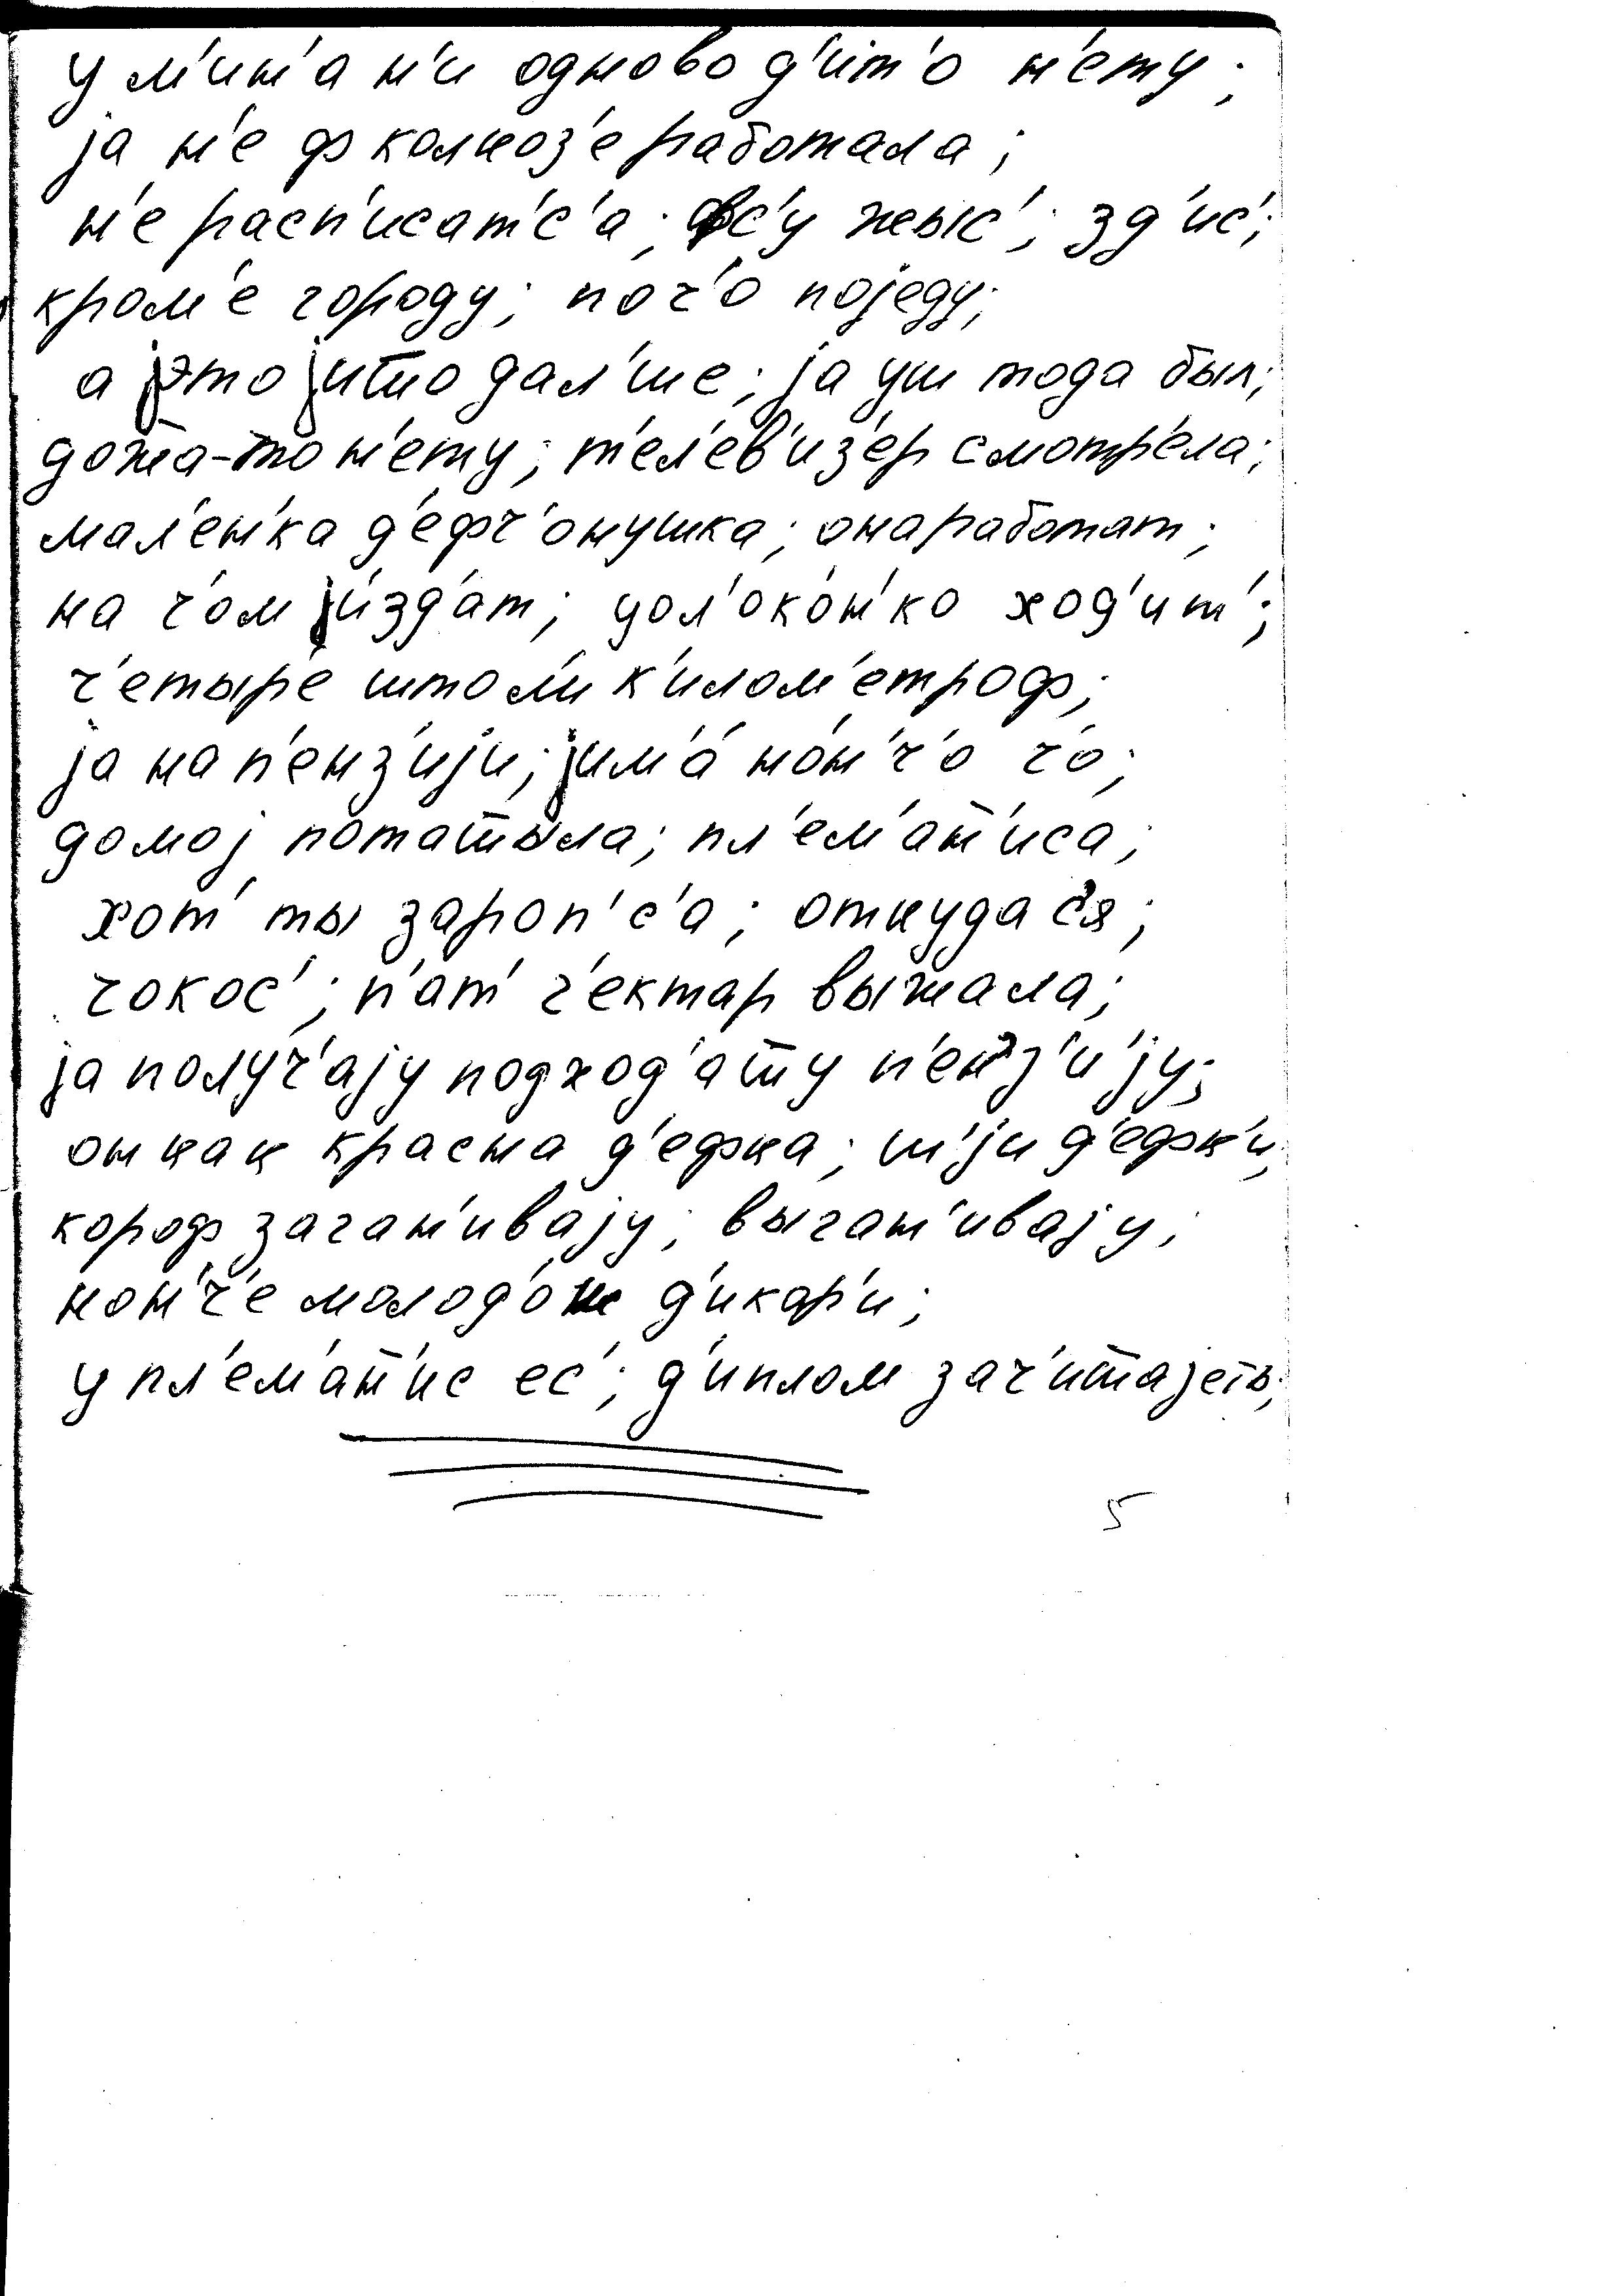 у м'ин'а н'и одново д'ит'о н'ету;
jа н'е ф колхоз'е работала;
н'е расп'исат'с'а; фс'у жыс'; зд'ис';
кром'е городу; поч'о поjеду;
а jэто jишо дал'ше; jа уш тода был;
дожа-то н'ету; т'ел'ев'из'ер смотр'ела;
мал'ен'ка д'ефч'онушка; она работат;
на ч'ом jизд'ат; дол'окон'ко ход'ит';
ч'етыр'е што л'и к'илом'етроф;
jа на п'енз'иjи; jим'а нон'ч'о ч'о;
домоj поташыла; пл'ем'ан'иса;
хот' ты зароп'с'а; откуда с'я;
чокос'; п'ат' г'ектар выжала;
jа получ'аjу подход'ашу п'енз'иjу;
он как красна д'ефка; ш'jи д'ефк'и;
короф заган'иваjу; выган'иваjу;
нон'ч'е молод'ош д'икар'и;
у пл'ем'ан'ис ес'; д'иплом зач'ишаjеть;
5